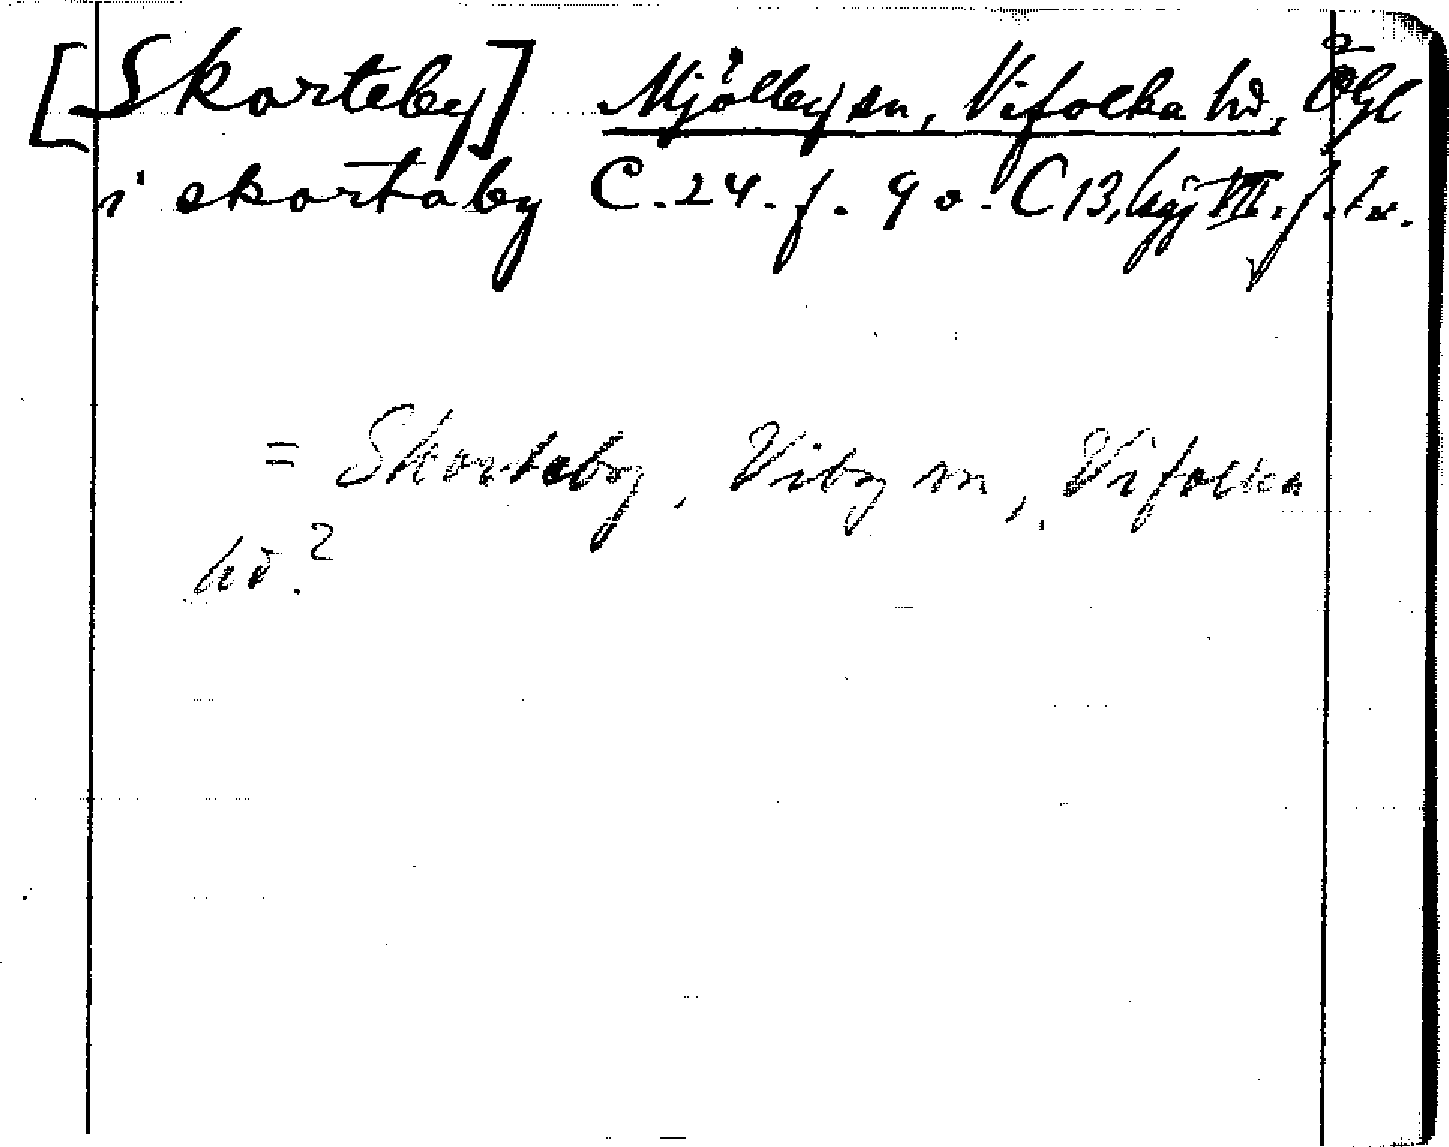 [Skorteby] Mjölby sn, Vifolka hd, Ögl
i skortaby C.24.f.90. C13, VII. f.
= Skorteby, Viby sn, Vifolka
hd.?